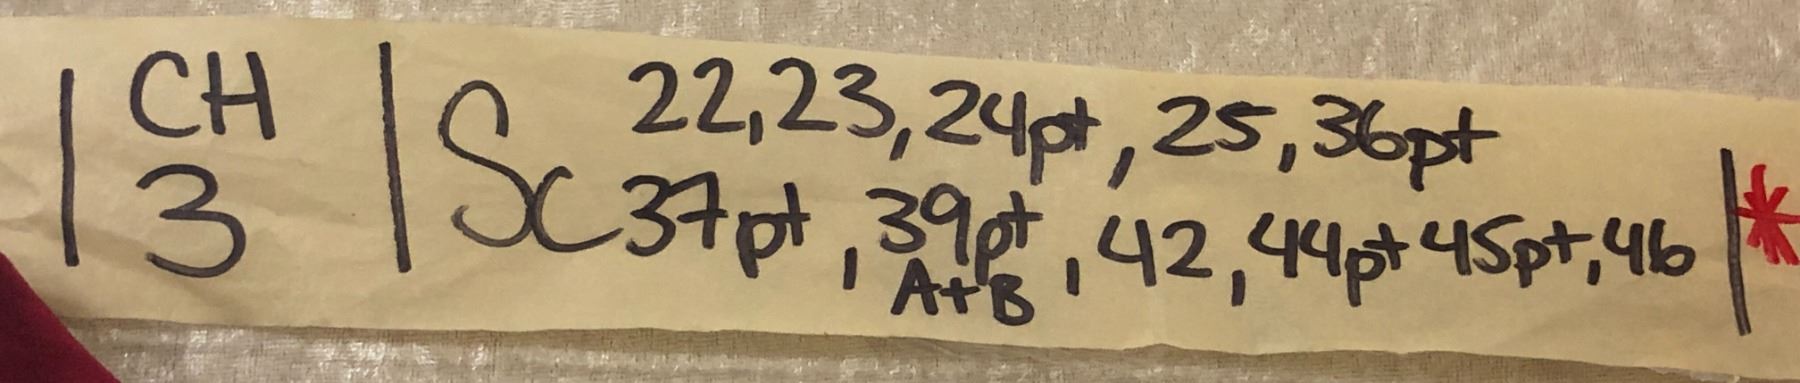 | CH | Sc 22, 23, 24pt, 25, 36pt
3 37pt, 39pt, 42, 44pt 45pt, 46 | *
A+B